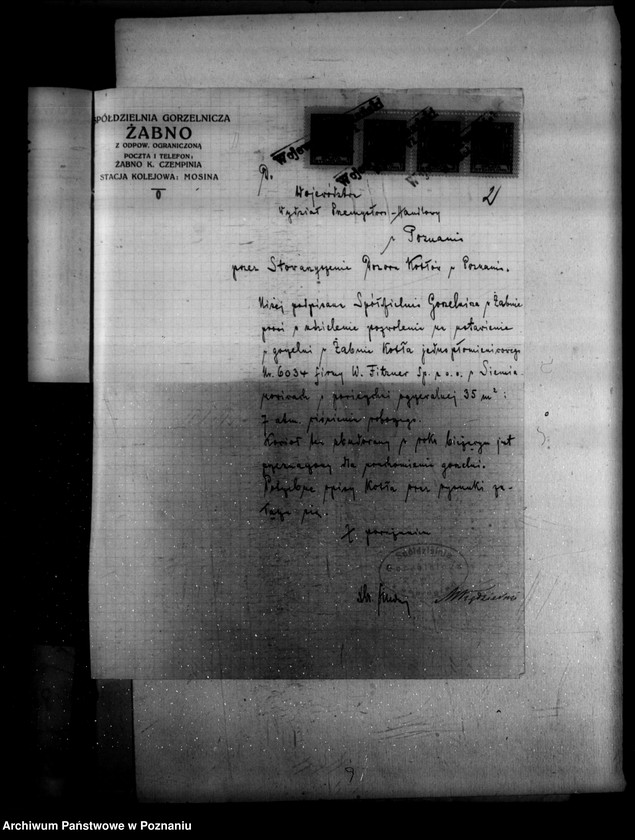 SPÓŁDZIELNIA GORZELNICZA
ŻABNO
Z ODPOW. OGRANICZONĄ
POCZTA I TELEFON:
ŻABNO K. CZEMPINIA
STACJA KOLEJOWA: MOSINA
2
Wydział Przemysłowo-Handlowy
w Poznaniu
przez Stowarzyszenie Dozoru Kotłów w Poznaniu.
Niżej podpisana Spółdzielnia Gorzelnicza w Żabnie
prosi o udzielenie pozwolenia na ustawienie
w gorzelni w Żabnie kotła jednopłomienicowego
Nr. 6034 firmy W. Fitzner Sp. z o. o. w Siemia-
nowicach o powierzchni ogrzewalnej 35 m² i
7 atm. ciśnienia roboczego.
Kocioł ten zbudowany w roku bieżącym jest
przeznaczony dla gorzelni.
Potrzebne opisy kotła oraz rysunki za-
łącza się.
Z poważaniem
Spółdzielnia
Archiwum Państwowe w Poznaniu